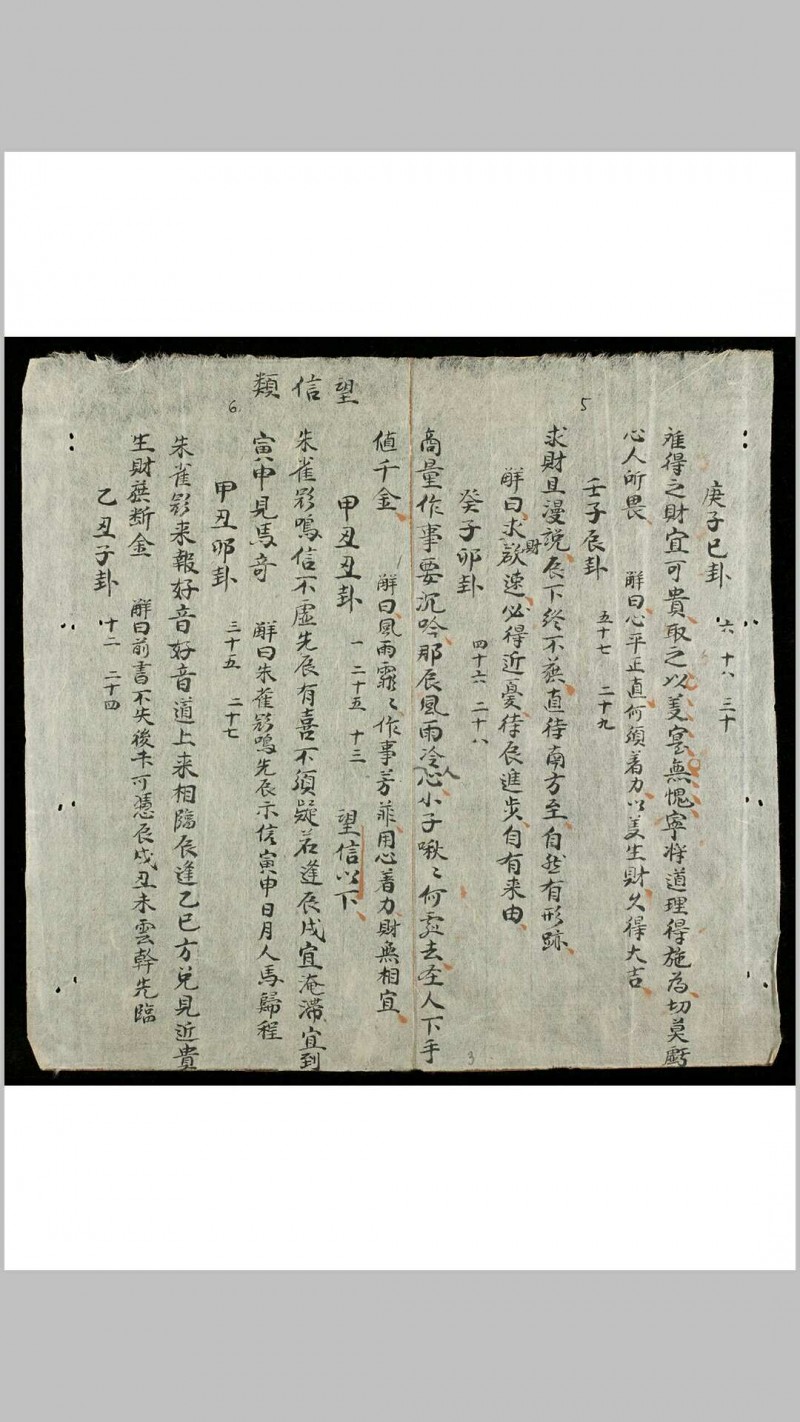 5
庚子巳卦 六 十八 三十
难得之財宜可貴取之以義寔無愧寧将道理得施為切莫虧
心人所畏 解曰心平正直何須着力以義生財久得大吉
壬子辰卦 五十七 二十九
求財且漫說辰下終不蔟直待南方至自然有形跡
解曰求財欲速必得近憂待辰進步自有来由
癸子卯卦 四十六 二十八
商量作事要沉吟那辰風雨冷人心小子啾〻何處去至人下手
值千金 解曰風雨霏〻作事芳菲用心着力財無相宜
望信類
6
甲丑丑卦 一 二十五 十三 望信以下
朱雀影鳴信不虛先辰有喜不須疑若逢辰戌宜淹滯宜到
寅申見馬竒 解曰朱雀影鳴先辰示信寅申日月人馬歸程
甲丑卯卦 三十五 二十七
朱雀影来報好音好音道上来相臨辰逢乙巳方兑見近貴
生財蔟断金 解曰前書不失後未可憑辰戌丑未雲幹先臨
乙丑子卦 十二 二十四
3